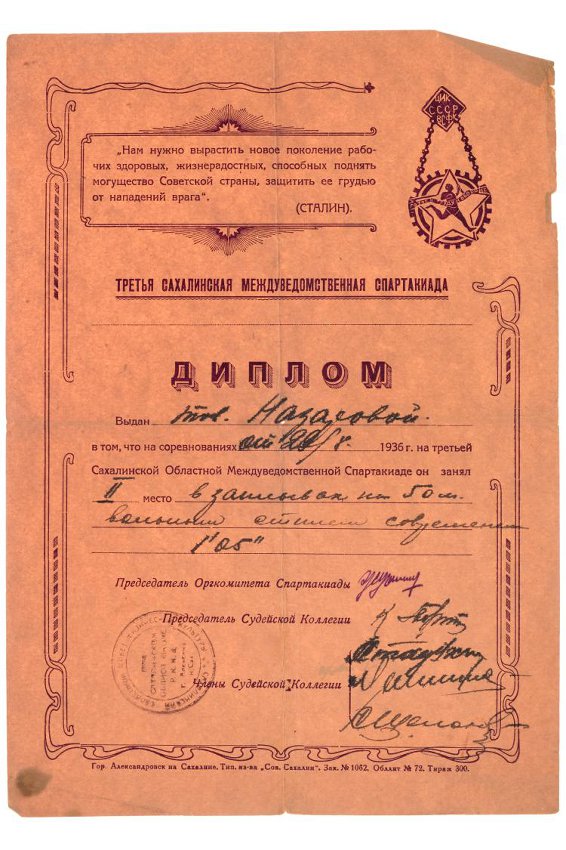 ЦИК
СССР
ВСФК
„Нам нужно вырастить новое поколение рабо-
чих здоровых, жизнерадостных, способных поднять
могущество Советской страны, защитить ее грудью
от нападений врага“.
(СТАЛИН).
ТРЕТЬЯ САХАЛИНСКАЯ МЕЖДУВЕДОМСТВЕННАЯ СПАРТАКИАДА
ДИПЛОМ
Выдан тов. Назаровой.
в том, что на соревнованиях от 1936 г. на третьей
Сахалинской Областной Междуведомственной Спартакиаде он занял
II место в заплывах на 50 м.
вольным стилем со временем
1'05"
Председатель Оргкомитета Спартакиады
Председатель Судейской Коллегии
Члены Судейской Коллегии
Гор. Александровск на Сахалине. Тип. из-ва „Сов. Сахалин“. Зак. № 1062. Обллит № 72. Тираж 300.